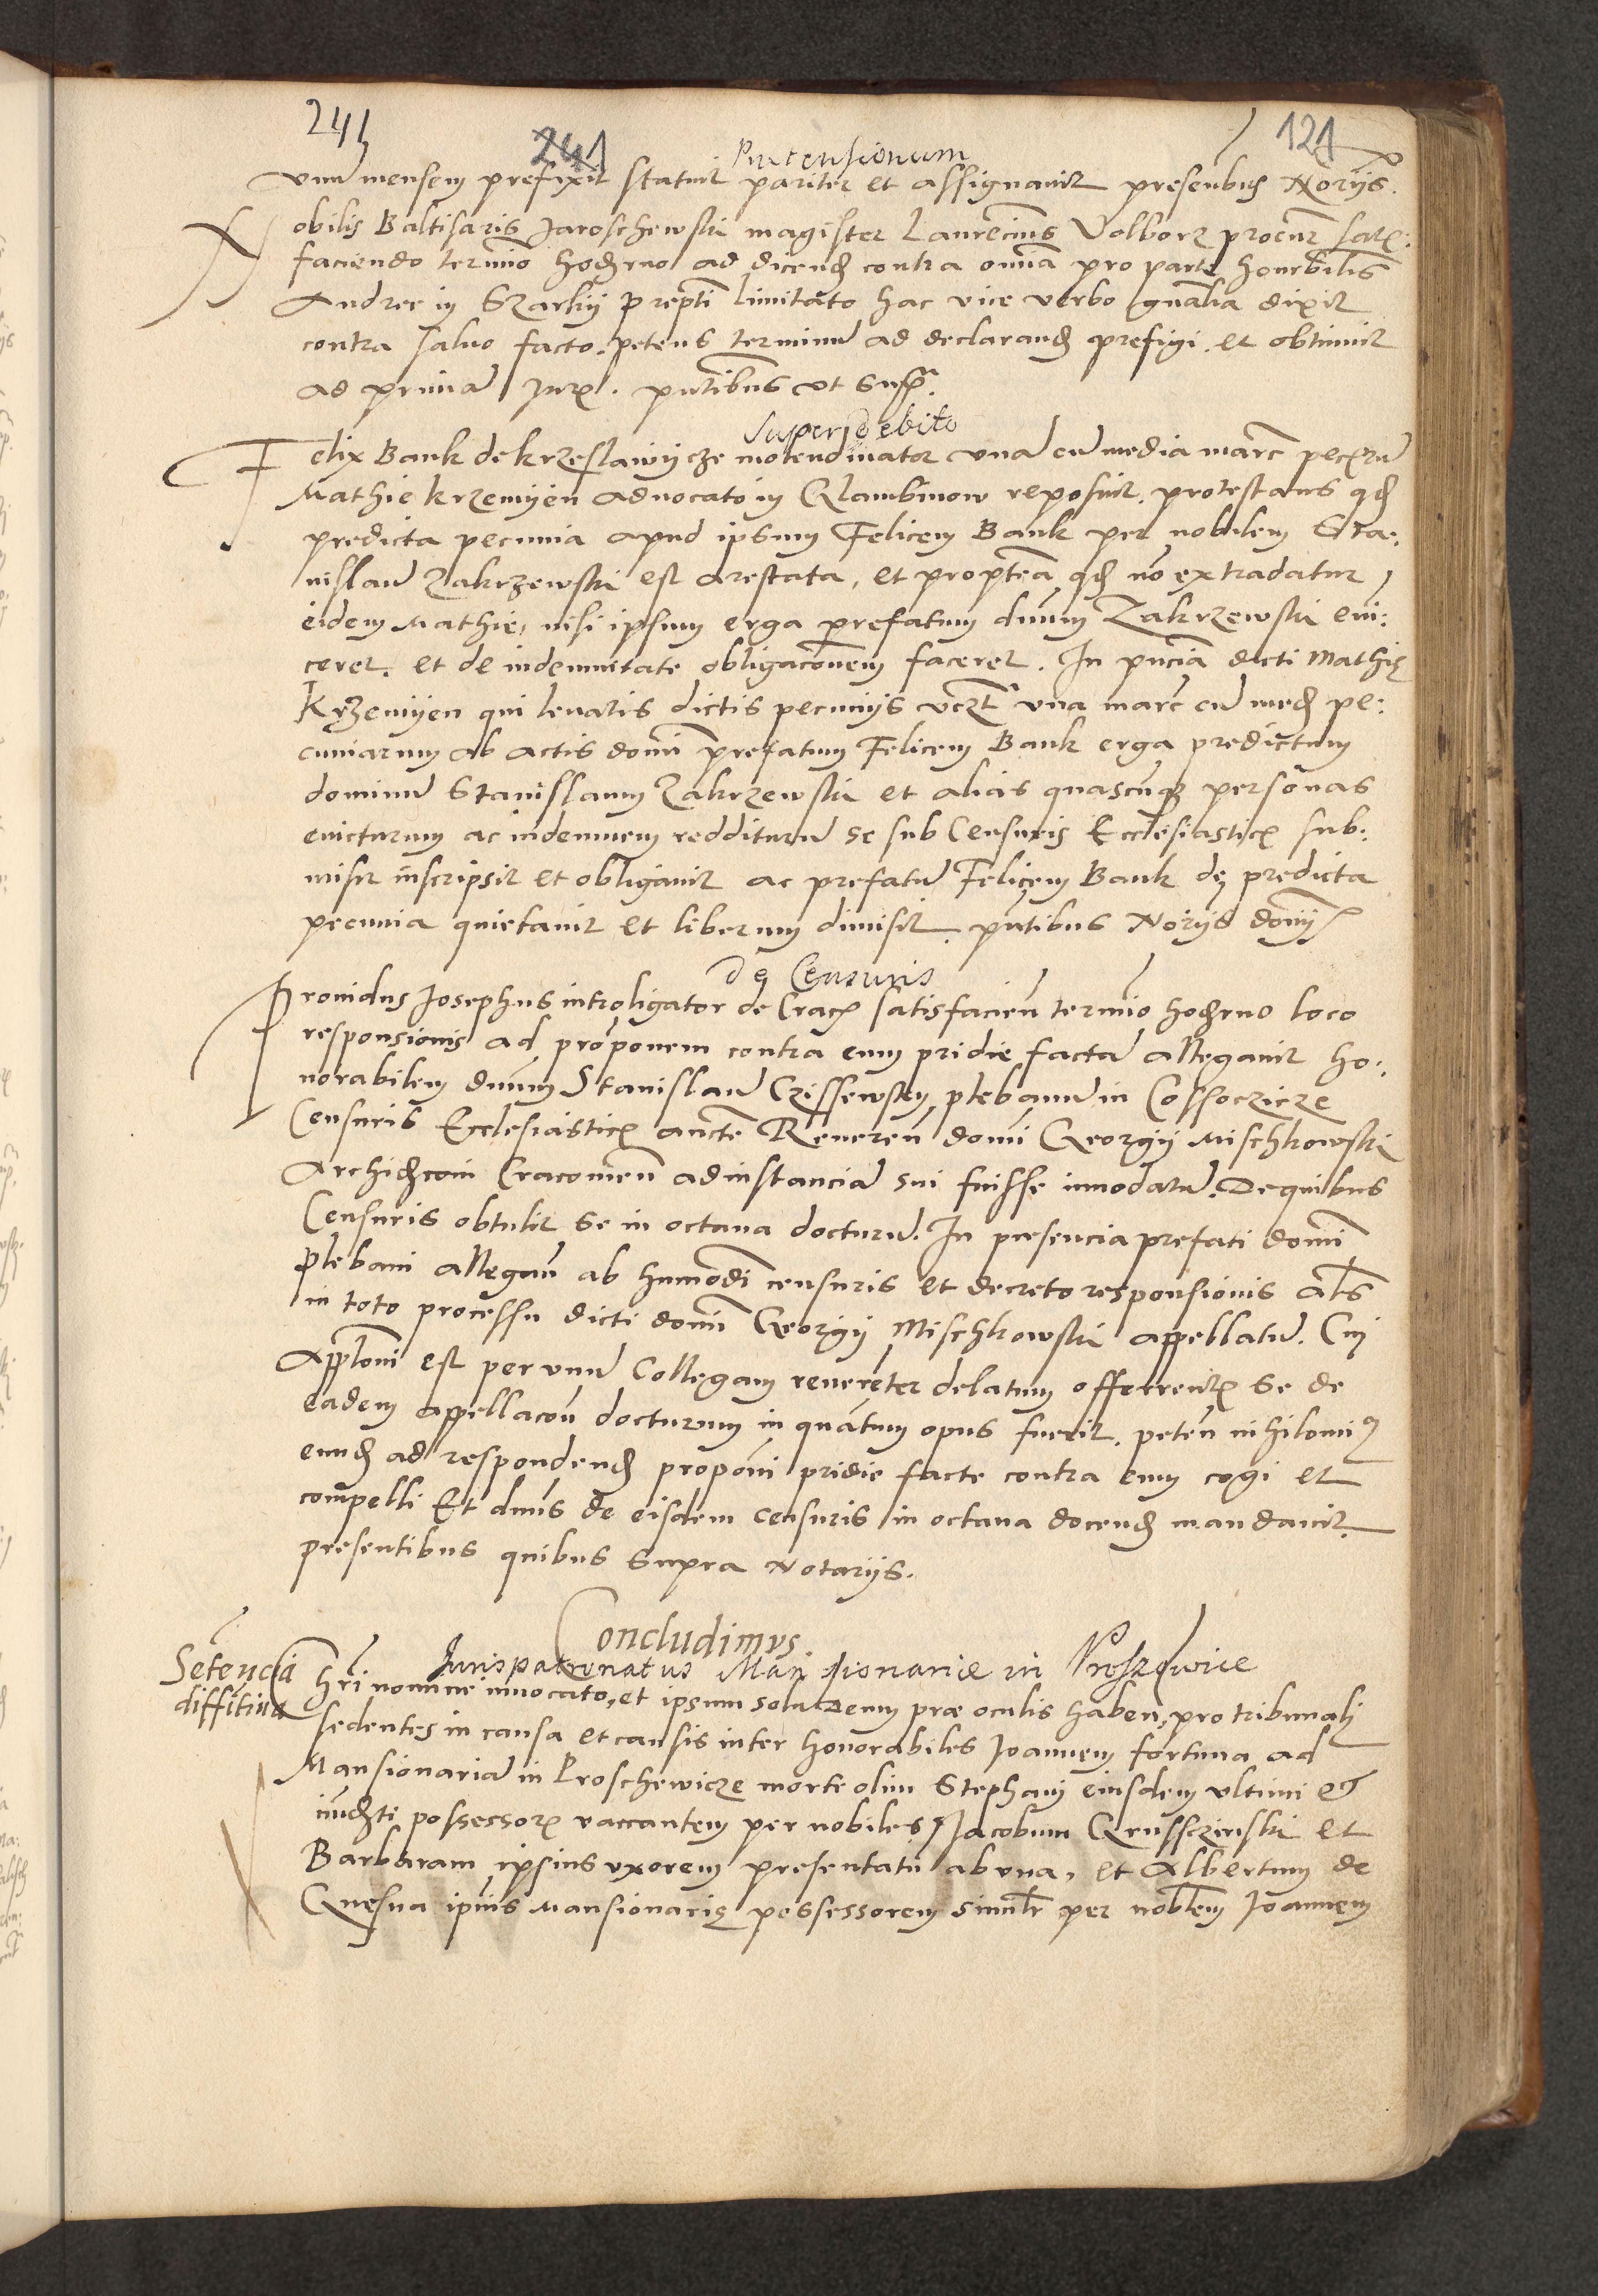 241
241
121
Pretensionum
vnu mensem prefixit statuit pariter et assignauit presentibus Noriis.
Nobilis Baltisaris Jaroschewski magister Laurecius Volborz procur satis
faciendo termio hodierno ad dicend contra omnia pro parte honrbilis
Andree in Szarkij prepti limitato hac vice verbo gnalia dixit
contra saluo facto. petens terminu ad declarand prefigi. et obtinuit
ad prima Jur. pntibus vt supra.
Super debito
Felix Bank de krzeslawycze molendinator vna cu media marc pecuniaru
Mathie krzemyen aduocato in Glambinow reposuit. protestans qd
predicta pecunia apud ipsum Felicem Bank per nobilem Sta:
nislau Zakrzewski est arestata, et proptea qd no extradatur
eidem Mathie, nisi ipsum erga prefatum dnum Zakrzewski eui:
ceret. et de indemnitate obligaconem faceret. In pncia dicti Mathie
Krzemyen qui leuatis dictis pecunijs vczt vna marc cu med pe:
cuniarum ab actis domi prefatum Felicem Bank erga predictum
dominu Stanislaum Zakrzewski et alias quascunque personas
euicturum ac indemnem redditurum se sub Censuris Ecclesiasticis sub:
misit inscripsit et obligauit ac prefatu Felicem Bank de predicta
pecunia quietauit et liberum dimisit. pntibus Noriis domij
De Censuris
Prouidus Josephus introligator de Crac satisfacien termio hodierno loco
responsionis ad proponem contra eum pridie facta allegauit ho:
norabilem dnum Stanislau Czissewsky plebanu in Cossoczicze
Censuris Ecclesiasticis aucte Reueren domi Georgij Mischkowski
Archidconi Cracouien ad instancia sui fuisse innodatu. De quibus
Censuris obtulit se in octaua docturu. In presencia prefati domi
Plebani allegan ab humodi censuris et decreto responsionis als
in toto processu dicti domi Georgij Mischkowski appellatu. Cuj
Applloni est per vnu Collegam reuerenter delatum offerrentis se de
eadem appellacon docturum in quantum opus fuerit. peten nihilomi9
eund ad respondend proponi pridie facte contra eum cogi et
compelli Et dnus de eisdem censuris in octaua docend mandauit
presentibus quibus supra Notarijs.
Concludimus
Setencia
diffitiua
Jurispatronatus Mansionarie in Proszowice
Chri nomine inuocato, et ipsum solu Deum præ oculis haben, pro tribunalj
sedentes in causa et causis inter honorabiles Joannem fortuna ad
Mansionaria in Proschewicze morte olim Stephani eiusdem vltimi et
inmedti possessoris vaccantem per nobiles Jacobum Grussczinski et
Barbaram ipsius vxorem presentatu ab vna, et Albertum de
Gnesna ipius Mansionarie possessorem similr per nobilem Joannem